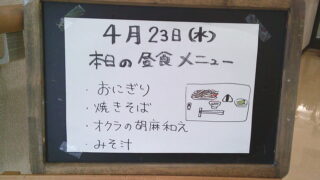 4月23日(水)
本日の昼食メニュー
・おにぎり
・焼きそば
・オクラの胡麻和え
・みそ汁